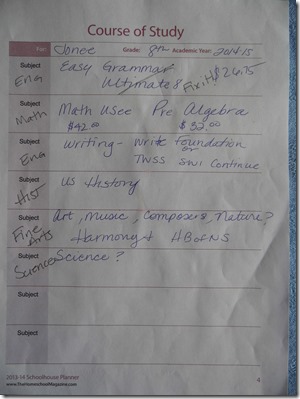 Course of Study
For: Jonee Grade: 8th Academic Year: 2014-15
Subject Eng Easy Grammar
Ultimate 8 Fix It! $26.75
Subject Math Math Usee Pre Algebra
$42.00 $32.00
Subject Eng Writing - Write foundation
or
TWSS SWI Continue
Subject Hist US History
Subject Fine Arts Art, Music, Composers, Nature?
Harmony + HBofNS
Subject Science Science?
Subject
Subject
2013-14 Schoolhouse Planner
www.TheHomeschoolMagazine.com
4